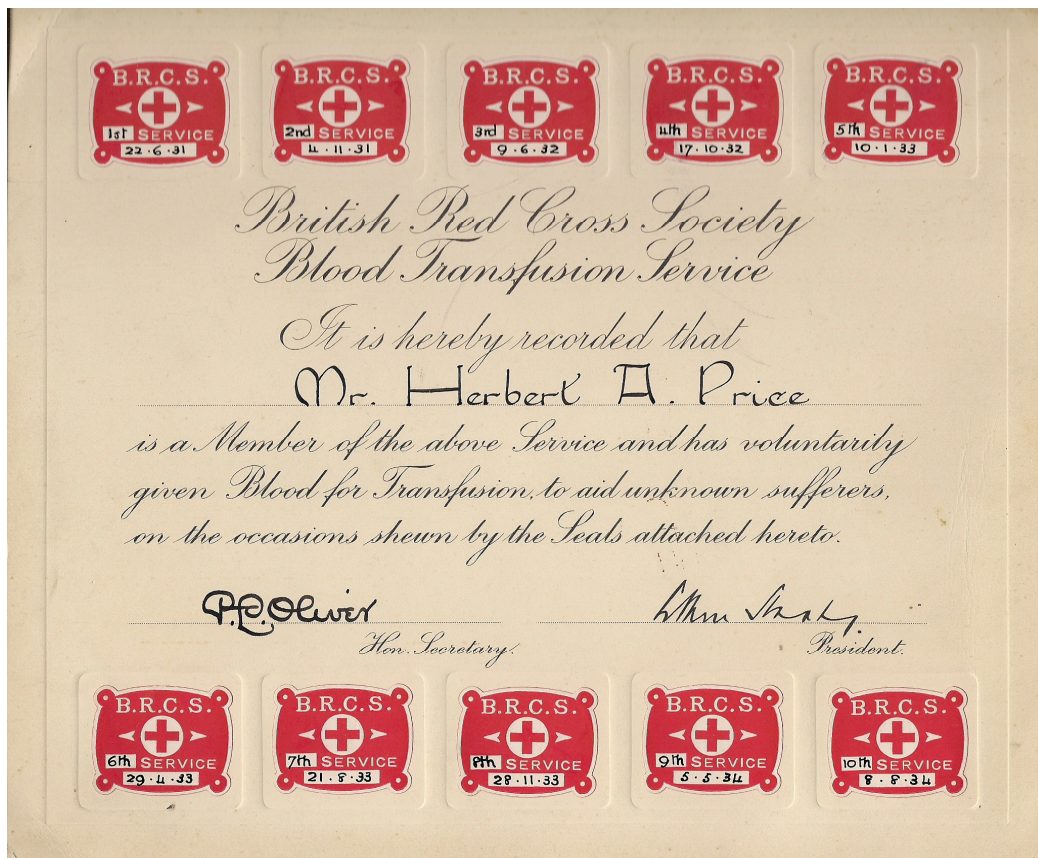 B.R.C.S.
1st SERVICE
22·6·31
B.R.C.S.
2nd SERVICE
4·11·31
B.R.C.S.
3rd SERVICE
9·6·32
B.R.C.S.
4th SERVICE
17·10·32
B.R.C.S.
5th SERVICE
10·1·33
British Red Cross Society
Blood Transfusion Service
It is hereby recorded that
Mr. Herbert A. Price
is a Member of the above Service and has voluntarily
given Blood for Transfusion, to aid unknown sufferers,
on the occasions shewn by the Seals attached hereto.
P.L.Oliver
Hon. Secretary.
President.
B.R.C.S.
6th SERVICE
29·4·33
B.R.C.S.
7th SERVICE
21·8·33
B.R.C.S.
8th SERVICE
28·11·33
B.R.C.S.
9th SERVICE
5·5·34
B.R.C.S.
10th SERVICE
8·8·34